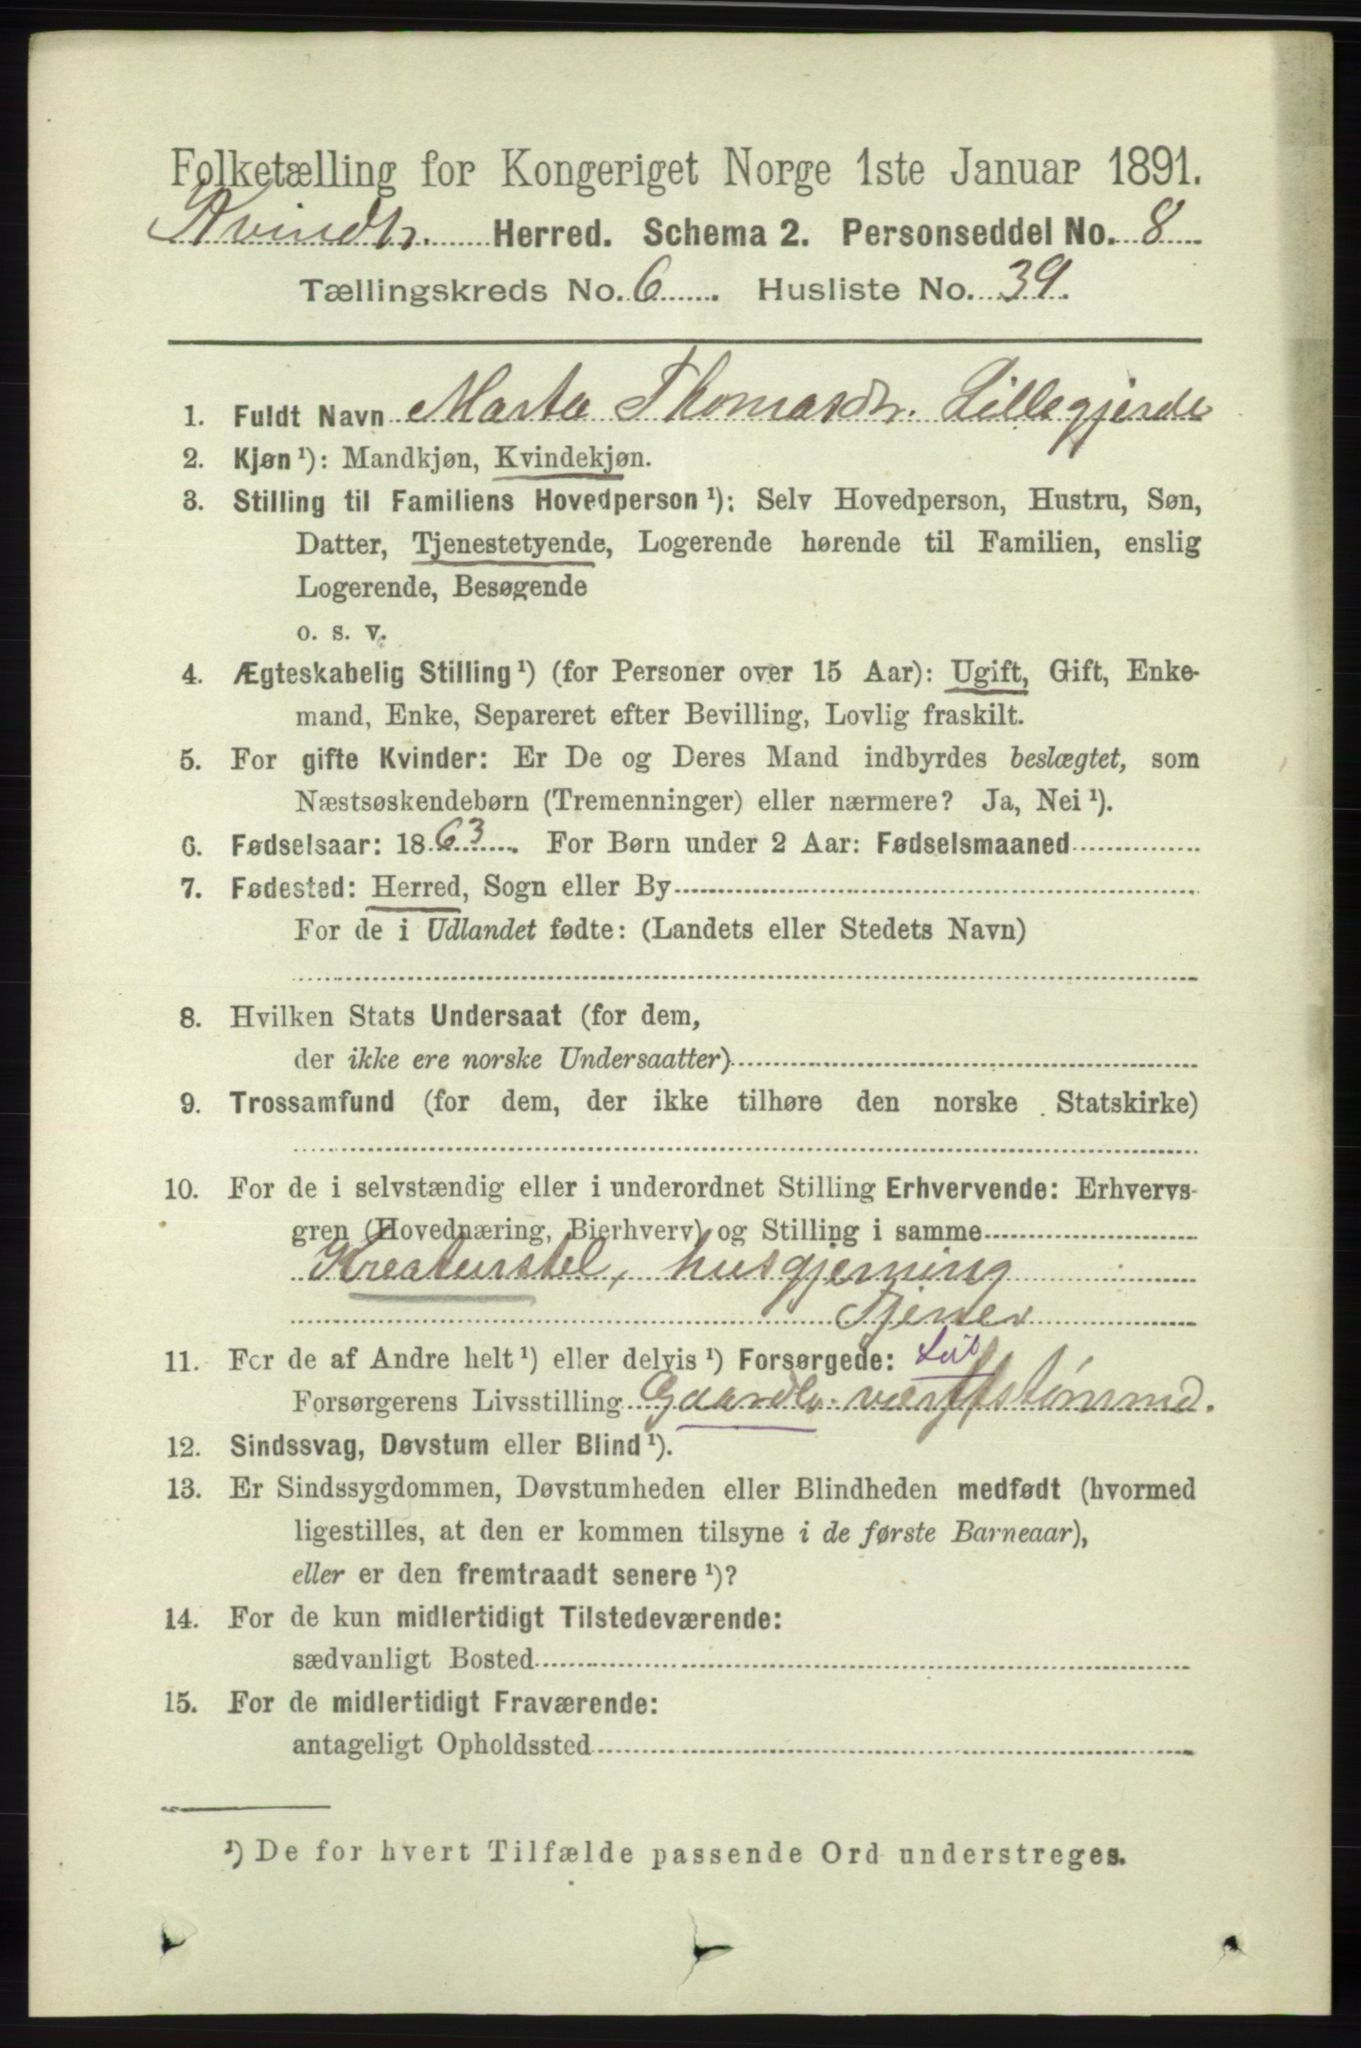 Folketælling for Kongeriget Norge 1ste Januar 1891.
Kvindh. Herred. Schema 2. Personseddel No. 8
Tællingskreds No. 6. Husliste No. 39.
1. Fuldt Navn Marta Thomasdtr. Lillegjerde
2. Kjøn¹): Mandkjøn, Kvindekjøn.
3. Stilling til Familiens Hovedperson¹): Selv Hovedperson, Hustru, Søn,
Datter, Tjenestetyende, Logerende hørende til Familien, enslig
Logerende, Besøgende
o. s. v.
4. Ægteskabelig Stilling¹) (for Personer over 15 Aar): Ugift, Gift, Enke-
mand, Enke, Separeret efter Bevilling, Lovlig fraskilt.
5. For gifte Kvinder: Er De og Deres Mand indbyrdes beslægtet, som
Næstsøskendebørn (Tremenninger) eller nærmere? Ja, Nei¹).
6. Fødselsaar: 1863. For Børn under 2 Aar: Fødselsmaaned
7. Fødested: Herred, Sogn eller By
For de i Udlandet fødte: (Landets eller Stedets Navn)
8. Hvilken Stats Undersaat (for dem,
der ikke ere norske Undersaatter)
9. Trossamfund (for dem, der ikke tilhøre den norske Statskirke)
10. For de i selvstændig eller i underordnet Stilling Erhvervende: Erhvervs-
gren (Hovednæring, Bierhverv) og Stilling i samme
Kreaturstel, husgjerning
Tjener
11. For de af Andre helt¹) eller delvis¹) Forsørgede:
Forsørgerens Livsstilling Gaardbr.
12. Sindssvag, Døvstum eller Blind¹).
13. Er Sindssygdommen, Døvstumheden eller Blindheden medfødt (hvormed
ligestilles, at den er kommen tilsyne i de første Barneaar),
eller er den fremtraadt senere¹)?
14. For de kun midlertidigt Tilstedeværende:
sædvanligt Bosted
15. For de midlertidigt Fraværende:
antageligt Opholdssted
¹) De for hvert Tilfælde passende Ord understreges.